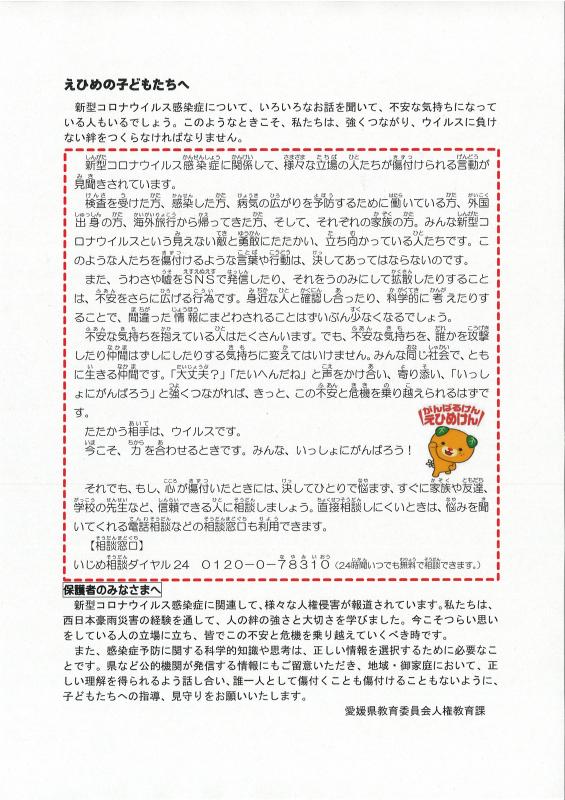 えひめの子どもたちへ
　新型コロナウイルス感染症について、いろいろなお話を聞いて、不安な気持ちになって
いる人もいるでしょう。このようなときこそ、私たちは、強くつながり、ウイルスに負け
ない絆をつくらなければなりません。
　新型コロナウイルス感染症に関係して、様々な立場の人たちが傷付けられる言動が
見聞きされています。
　検査を受けた方、感染した方、病気の広がりを予防するために働いている方、外国
出身の方、海外旅行から帰ってきた方、そして、それぞれの家族の方。みんな新型コ
ロナウイルスという見えない敵と勇敢にたたかい、立ち向かっている人たちです。こ
のような人たちを傷付けるような言葉や行動は、決してあってはならないのです。
　また、うわさや嘘をＳＮＳで発信したり、それをうのみにして拡散したりすること
は、不安をさらに広げる行為です。身近な人と確認し合ったり、科学的に考えたりす
ることで、間違った情報にまどわされることはずいぶん少なくなるでしょう。
　不安な気持ちを抱えている人はたくさんいます。でも、不安な気持ちを、誰かを攻撃
したり仲間はずしにしたりする気持ちに変えてはいけません。みんな同じ社会で、とも
に生きる仲間です。「大丈夫？」「たいへんだね」と声をかけ合い、寄り添い、「いっし
ょにがんばろう」と強くつながれば、きっと、この不安と危機を乗り越えられるはずで
す。
　たたかう相手は、ウイルスです。
　今こそ、力を合わせるときです。みんな、いっしょにがんばろう！
がんばるけん
えひめけん
　それでも、もし、心が傷付いたときには、決してひとりで悩まず、すぐに家族や友達、
学校の先生など、信頼できる人に相談しましょう。直接相談しにくいときは、悩みを聞
いてくれる電話相談などの相談窓口も利用できます。
【相談窓口】
いじめ相談ダイヤル２４　０１２０－０－７８３１０（２４時間いつでも無料で相談できます。）
保護者のみなさまへ
　新型コロナウイルス感染症に関連して、様々な人権侵害が報道されています。私たちは、
西日本豪雨災害の経験を通して、人の絆の強さと大切さを学びました。今こそつらい思い
をしている人の立場に立ち、皆でこの不安と危機を乗り越えていくべき時です。
　また、感染症予防に関する科学的知識や思考は、正しい情報を選択するために必要なこ
とです。県など公的機関が発信する情報にもご留意いただき、地域・御家庭において、正
しい理解を得られるよう話し合い、誰一人として傷付くことも傷付けることもないように、
子どもたちへの指導、見守りをお願いいたします。
愛媛県教育委員会人権教育課